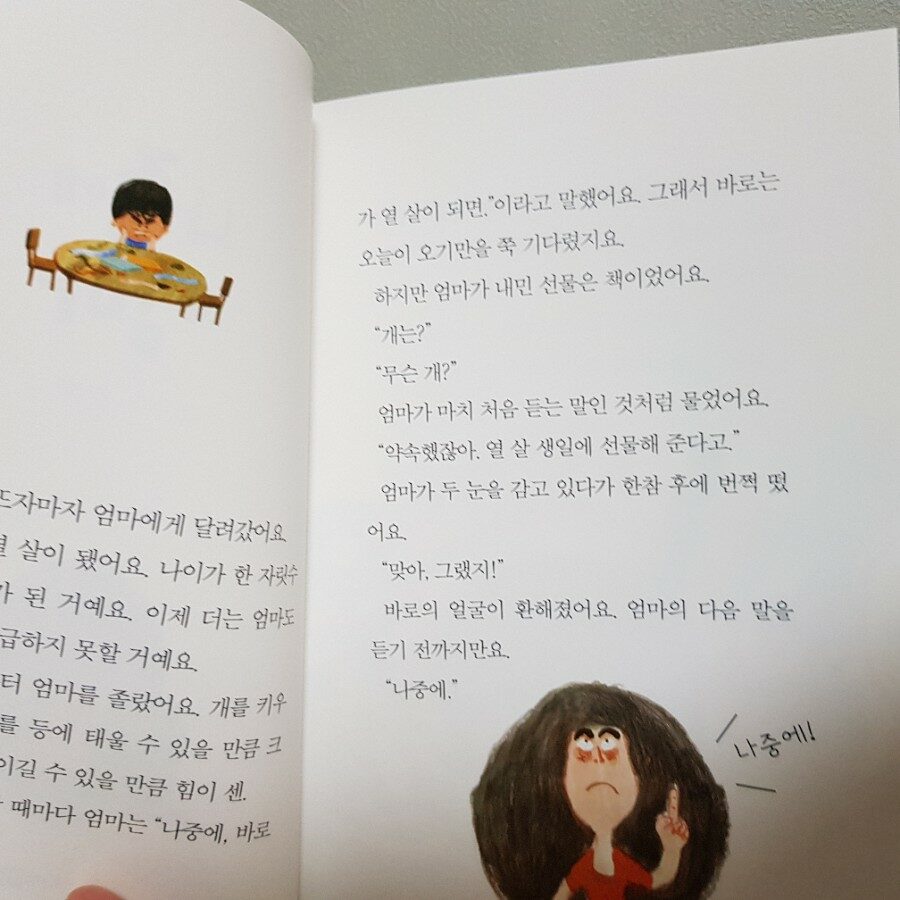 뜨자마자 엄마에게 달려갔어요.
살이 됐어요. 나이가 한 자릿수
가 된 거예요. 이제 더는 엄마도
급하지 못할 거예요.
터 엄마를 졸랐어요. 개를 키우
를 등에 태울 수 있을 만큼 크
이길 수 있을 만큼 힘이 센.
때마다 엄마는 “나중에, 바로
가 열 살이 되면.”이라고 말했어요. 그래서 바로는
오늘이 오기만을 쭉 기다렸지요.
하지만 엄마가 내민 선물은 책이었어요.
“개는?”
“무슨 개?”
엄마가 마치 처음 듣는 말인 것처럼 물었어요.
“약속했잖아. 열 살 생일에 선물해 준다고.”
엄마가 두 눈을 감고 있다가 한참 후에 번쩍 떴
어요.
“맞아, 그랬지!”
바로의 얼굴이 환해졌어요. 엄마의 다음 말을
듣기 전까지만요.
“나중에.”
나중에!